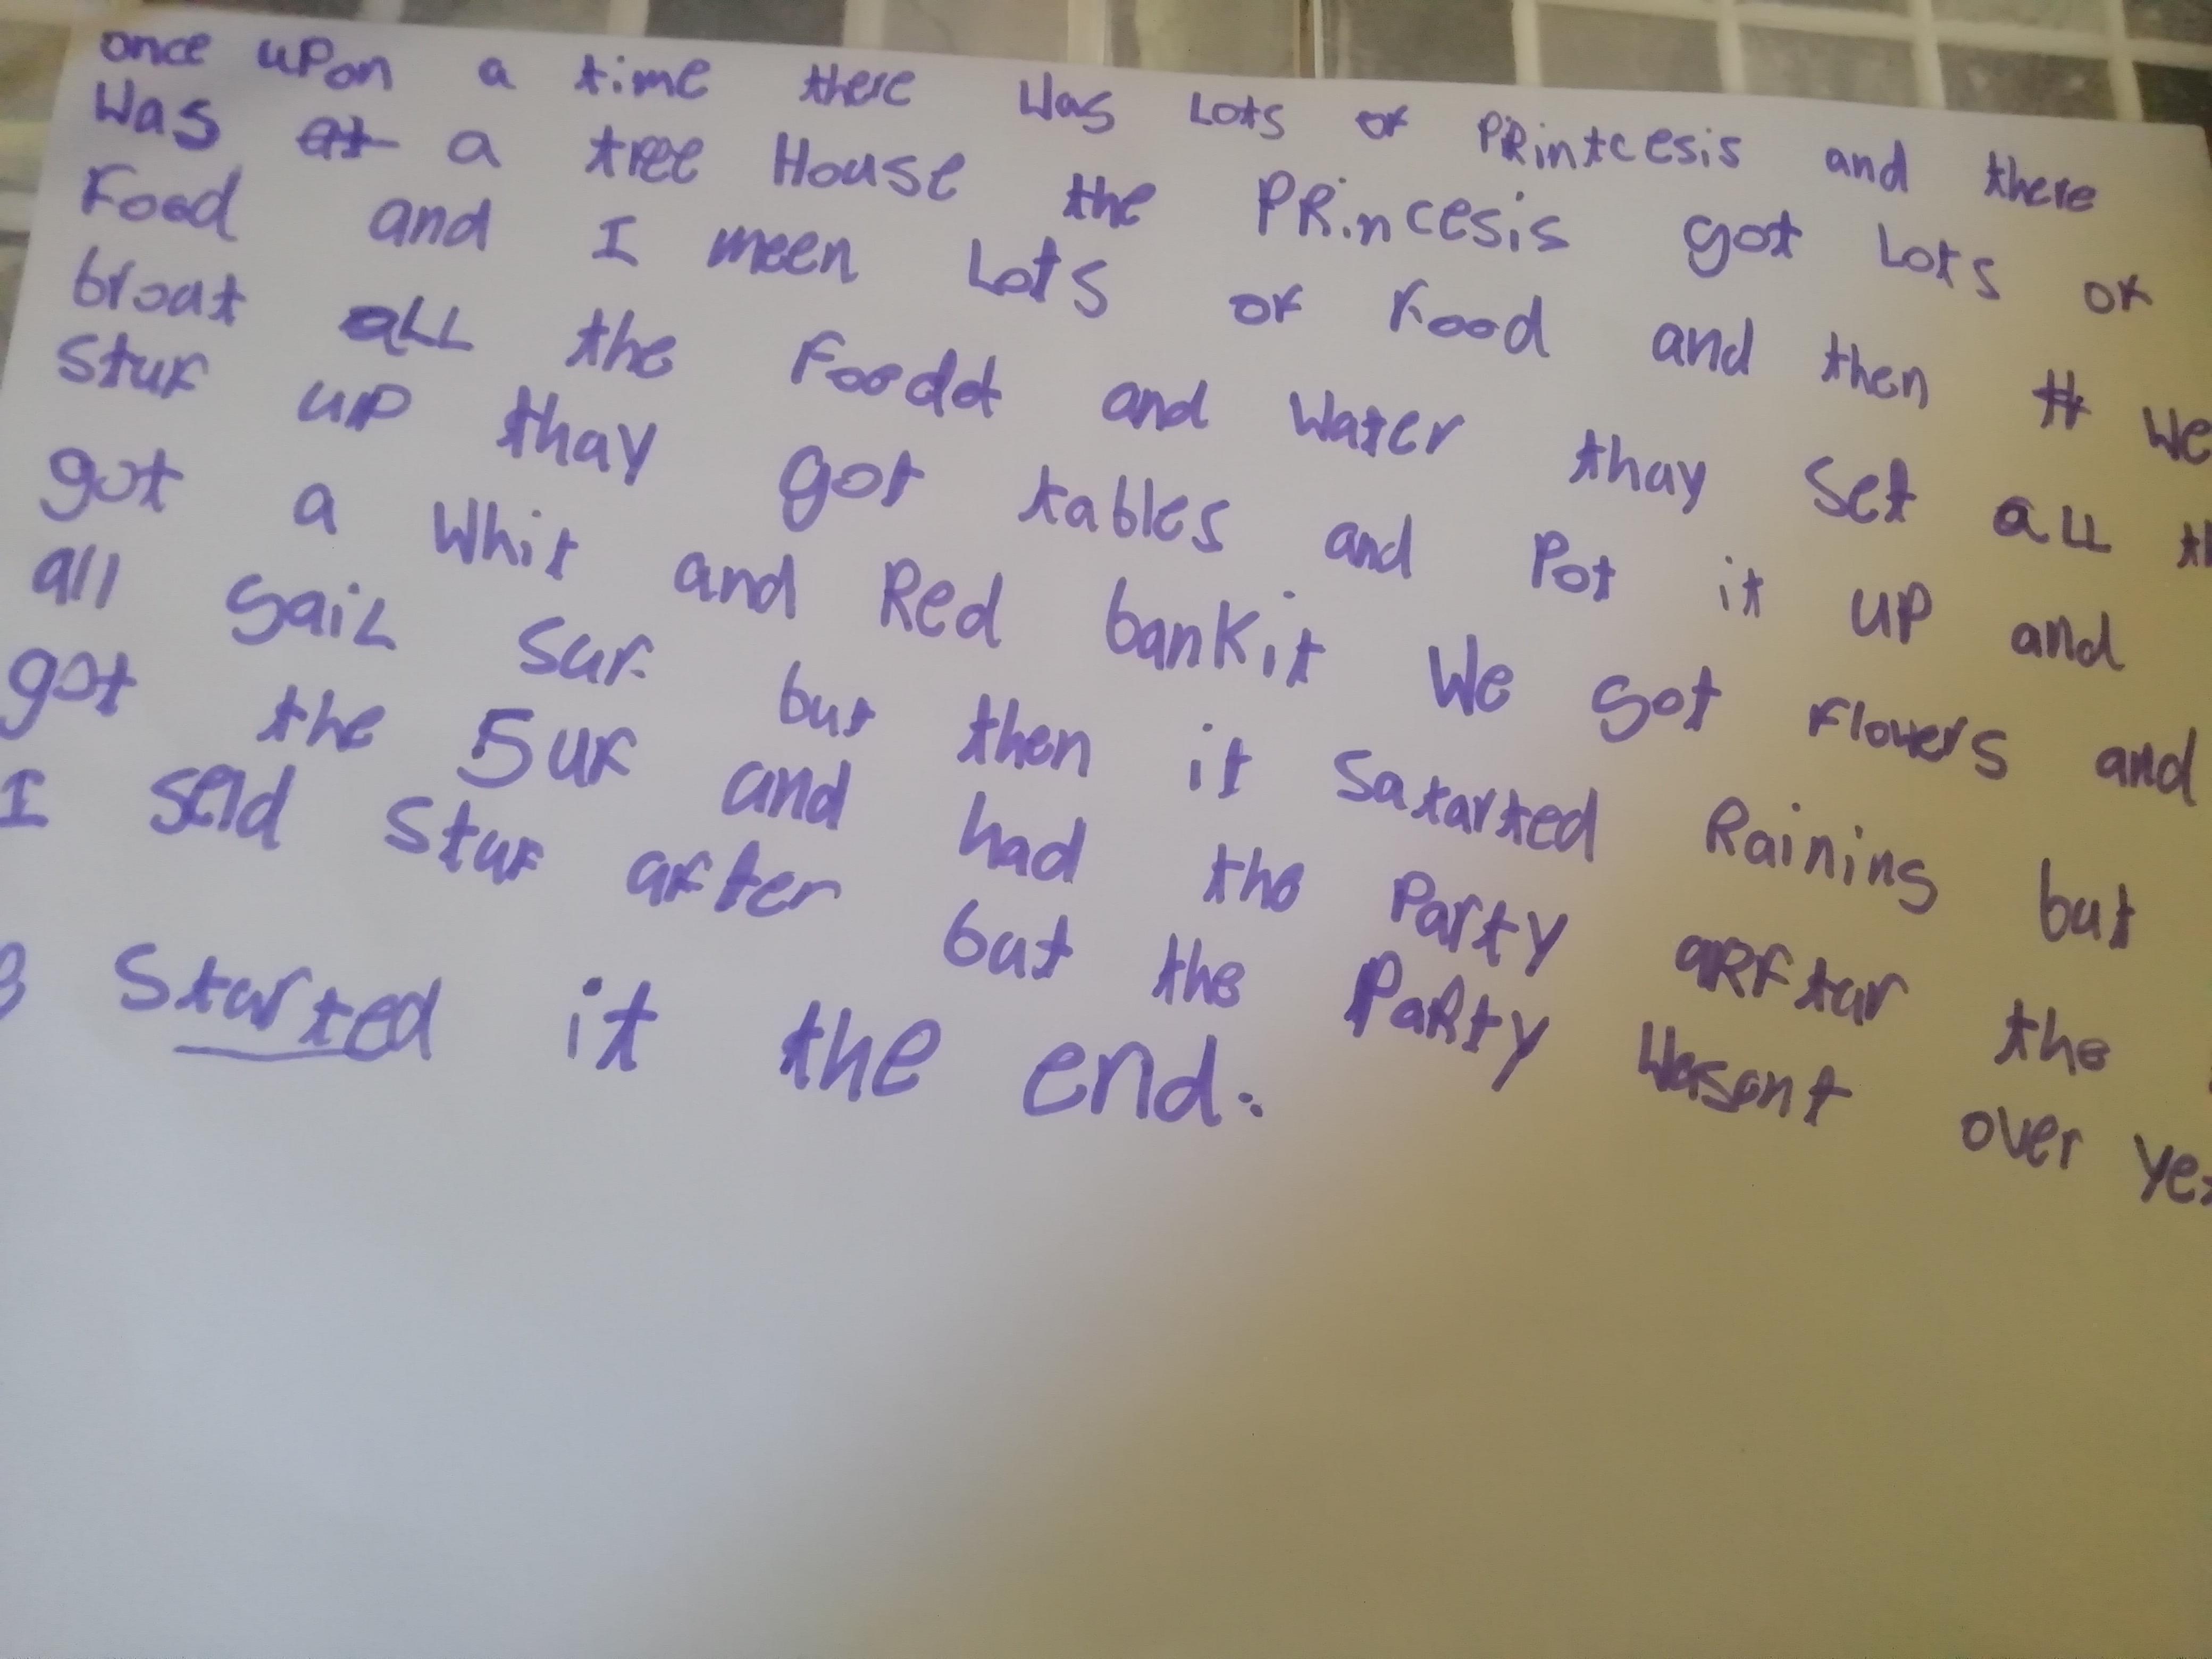 once upon a time there was Lots of PRintcesis and there
Was at a tree House the PRincesis got Lots of
Food and I meen Lots of Food and then tt we
broat aLL the Foodd and Water thay Set aLL th
Stuf up thay got tables and Pot it up and
got a Whit and Red bankit We got Flowers and
all Sail Suf but then it Satarted Raining but
got the Suf and had the Party aRFtar the
I seId Stuf after but the PaRty Wasent over yet
Started it the end.